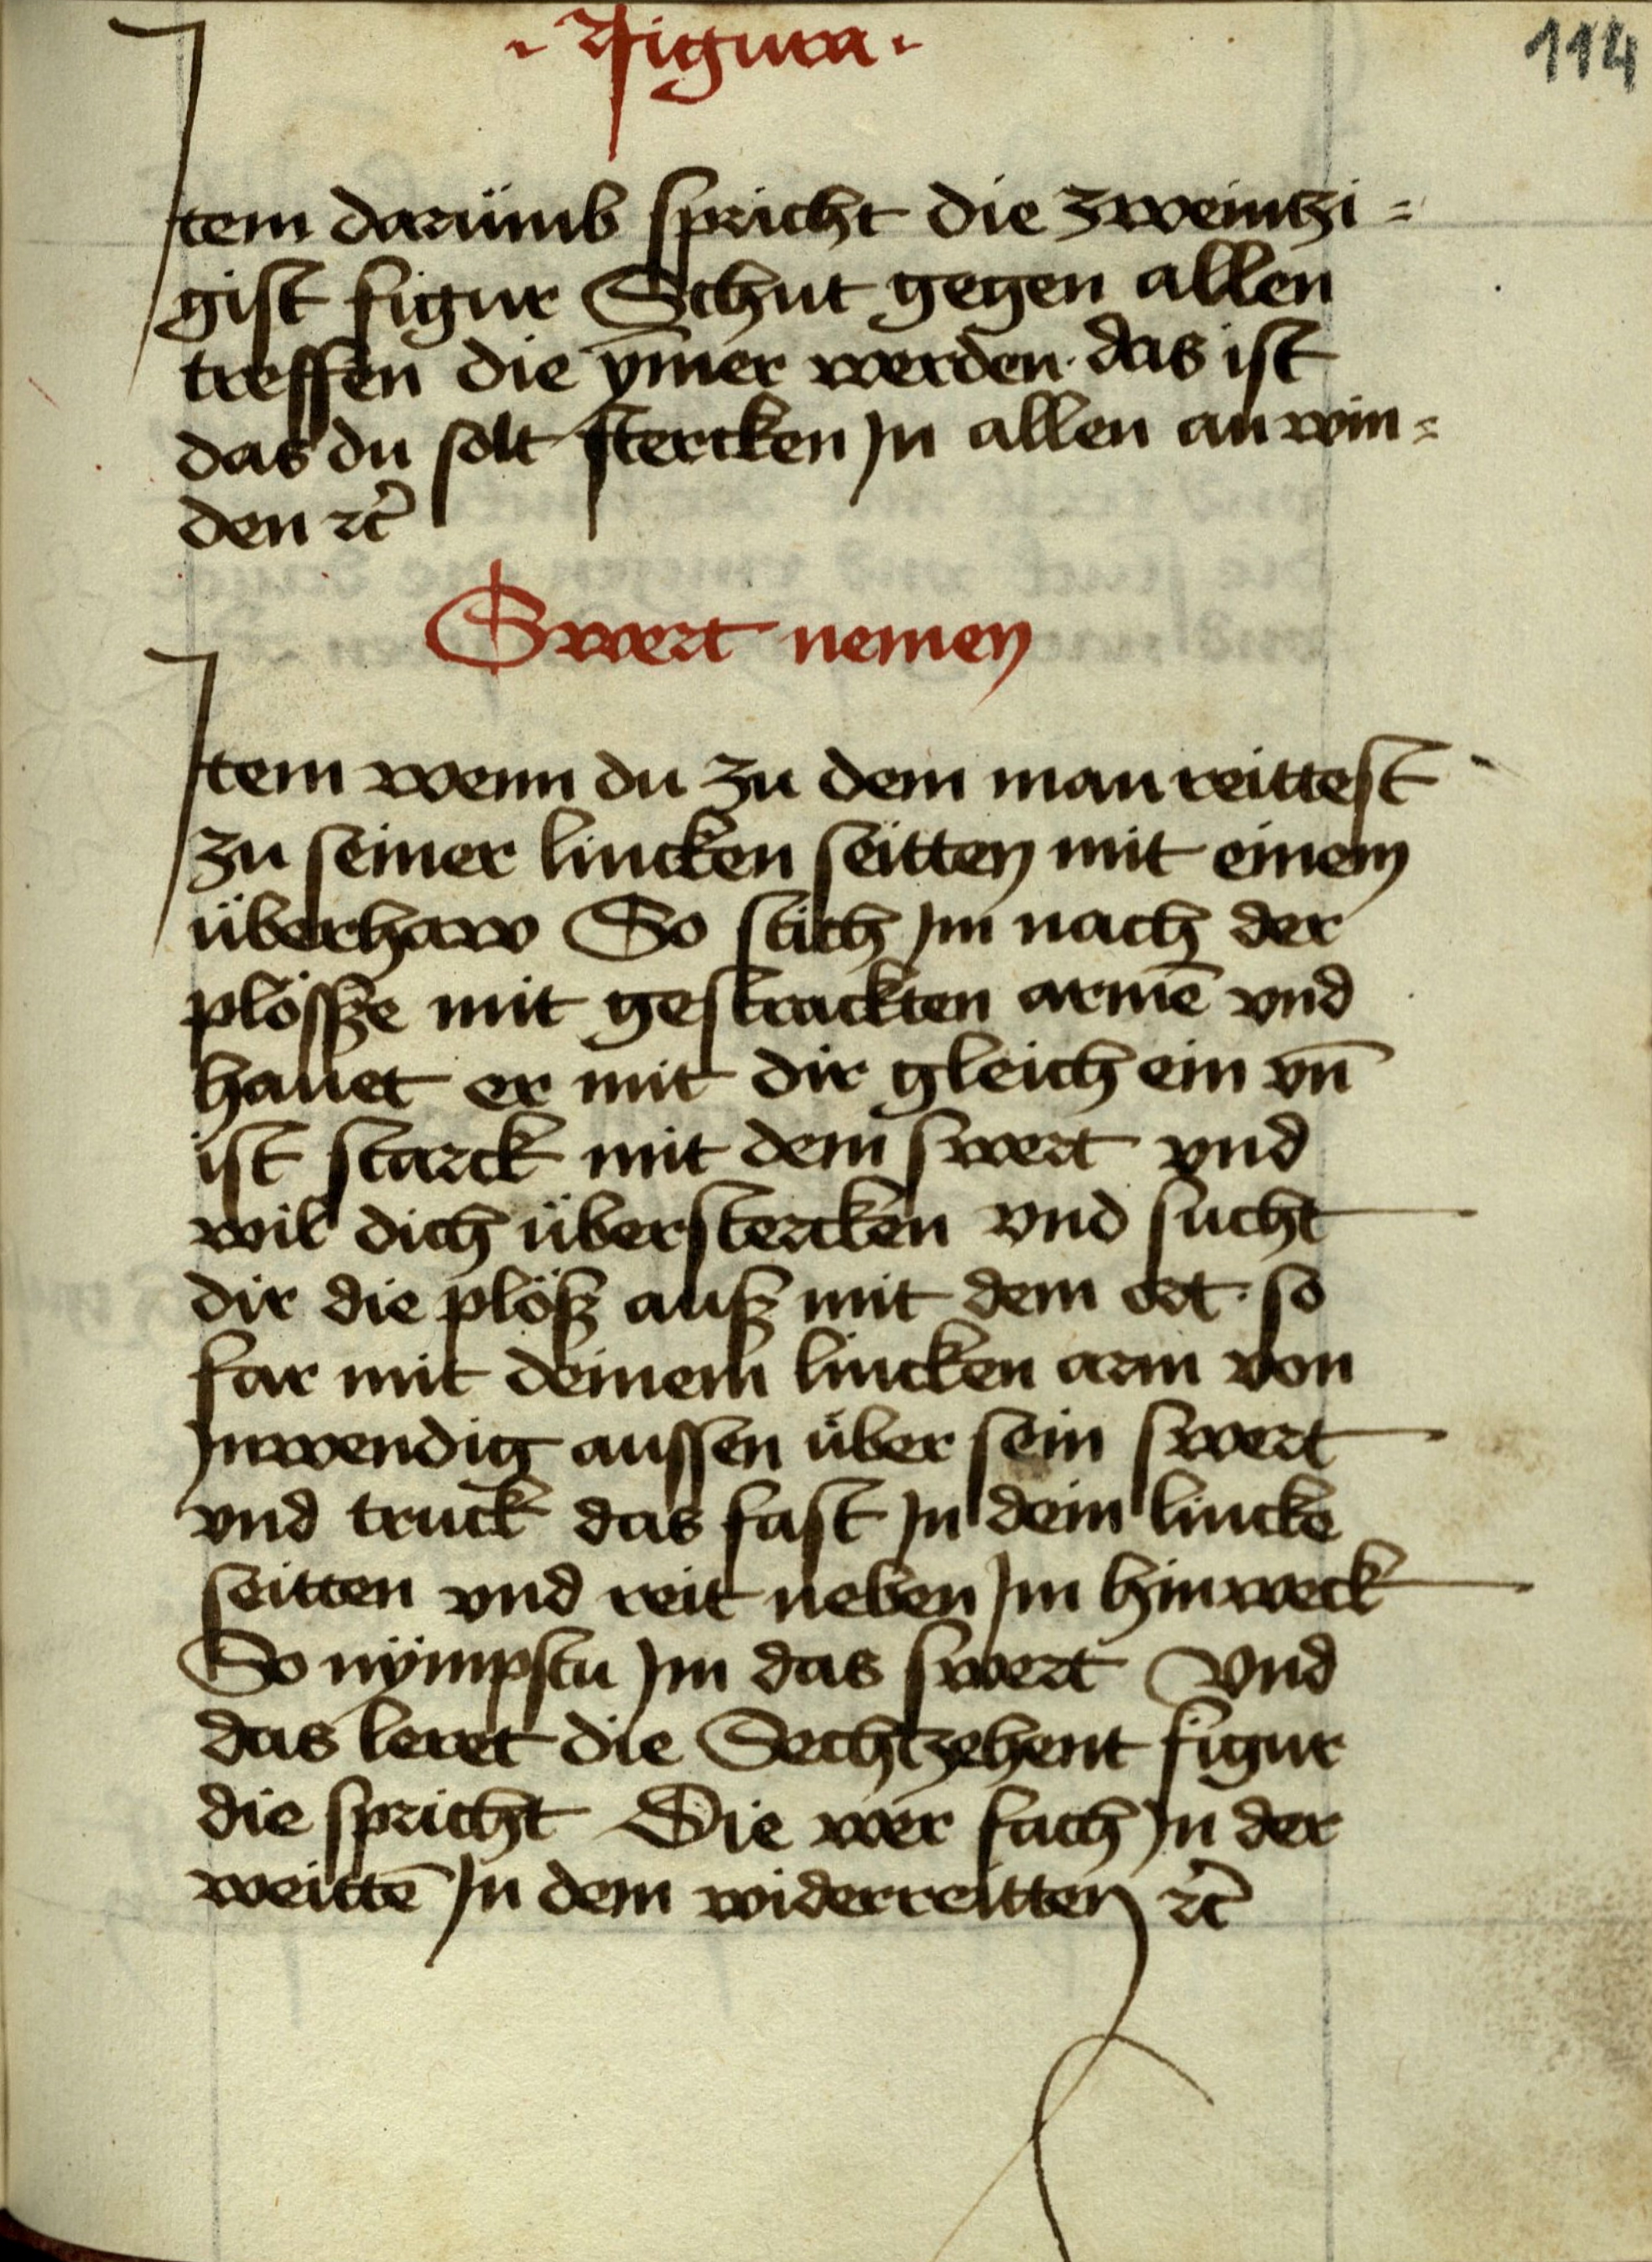 Figura
114
Item darümb spricht die zweintzi=
gist figur Schut gegen allen
treffen die ym̄er werden· das ist
das du solt stercken Jn allen an win=
den ⁊c̄
Swert nemen
Item wenn du zu dem man reittest
zu seiner lincken seitten mit einem
überhaw So stich Jm nach der
plösse mit gestrackten armē vnd
hauet er mit dir gleich ein vn̄
ist starck mit dem swert vnd
wil dich überstercken vnd sücht
dir die plöß auß mit dem ort· so
far mit deinem lincken arm von
Jnwendig aussen über sein swert
vnd truck das fast Jn dein lincke
seitten vnd reit neben Jm hinweck
So nÿmpstu Jm das swert Vnd
das leret die Sechtzehent figur
die spricht Die wer fach Jn der
weittē Jn dem widerreitten ⁊c̄